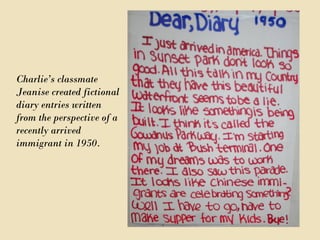 Charlie's classmate
Jeanise created fictional
diary entries written
from the perspective of a
recently arrived
immigrant in 1950.
Dear, Diary 1950
I just arrived in america. Things
in sunset park dont look so
good. All this talk in my Country
that they have this beautiful
waterfront seems to be a lie.
It looks like something is being
built. I think it's called the
Gowanus Parkway. I'm starting
my job at Bush terminal. One
Of my dreams was to work
there. I also saw this parade.
It looks like Chinese immi-
grants are celebrating something
Well I have to go, have to
make supper for my kids. Bye!